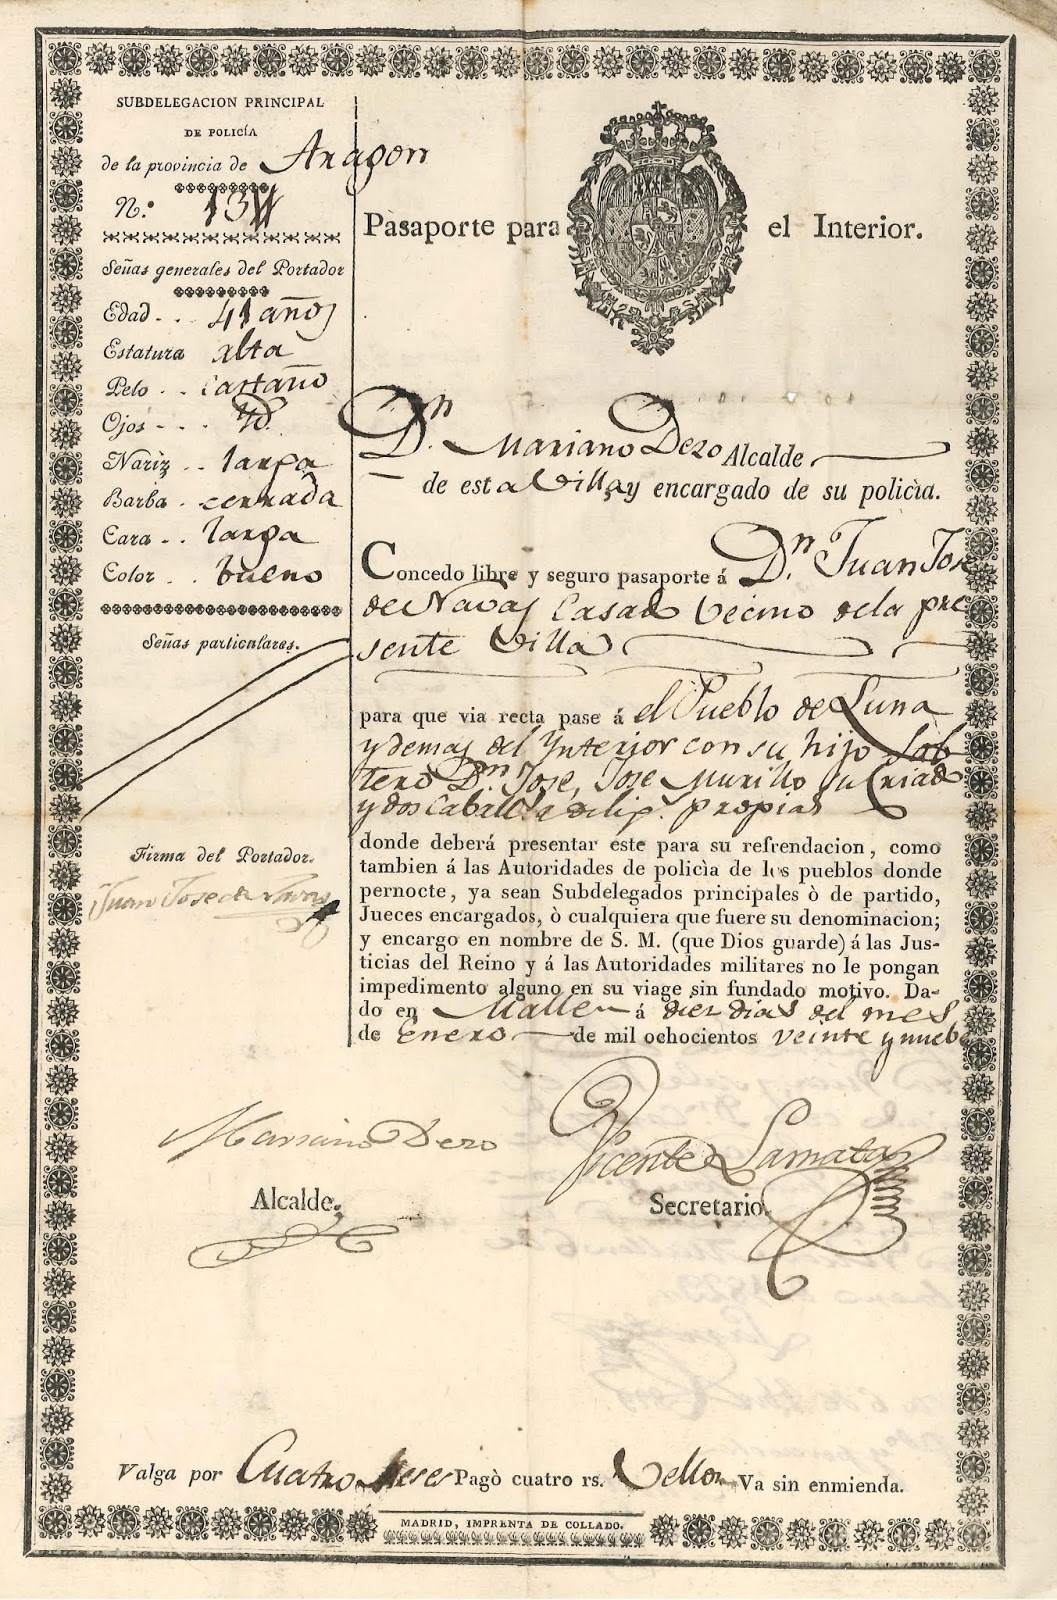 SUBDELEGACION PRINCIPAL
DE POLICÍA
de la provincia de Aragon
N.º
Señas generales del Portador
Edad . . 41 años
Estatura alta
Pelo . . Castaño
Ojos - - . Yd.
Nariz . . larga
Barba . cerrada
Cara . . larga
Color . . bueno
Señas particulares.
Firma del Portador.
Juan Jose de Navas
Pasaporte para el Interior.
Dn. Mariano Dezo Alcalde
de esta Villa y encargado de su policìa.
Concedo libre y seguro pasaporte á Dn. Juan Jose
de Navas Casado Vecino de la pre
sente Villa
para que via recta pase á el Pueblo de Luna
y demas del Ynterior con su hijo Sol
tero Dn. Jose, Jose Murillo su Criado
y dos propias
donde deberá presentar este para su refrendacion, como
tambien á las Autoridades de policìa de los pueblos donde
pernocte, ya sean Subdelegados principales ò de partido,
Jueces encargados, ò cualquiera que fuere su denominacion;
y encargo en nombre de S. M. (que Dios guarde) á las Jus-
ticias del Reino y á las Autoridades militares no le pongan
impedimento alguno en su viage sin fundado motivo. Da-
do en Mallen á diez dias del mes
de Enero de mil ochocientos veinte y nuebe
Mariano Dezo
Alcalde.
Vicente Lamata
Secretario.
Valga por Cuatro Meses Pagò cuatro rs. Vellon Va sin enmienda.
MADRID, IMPRENTA DE COLLADO.